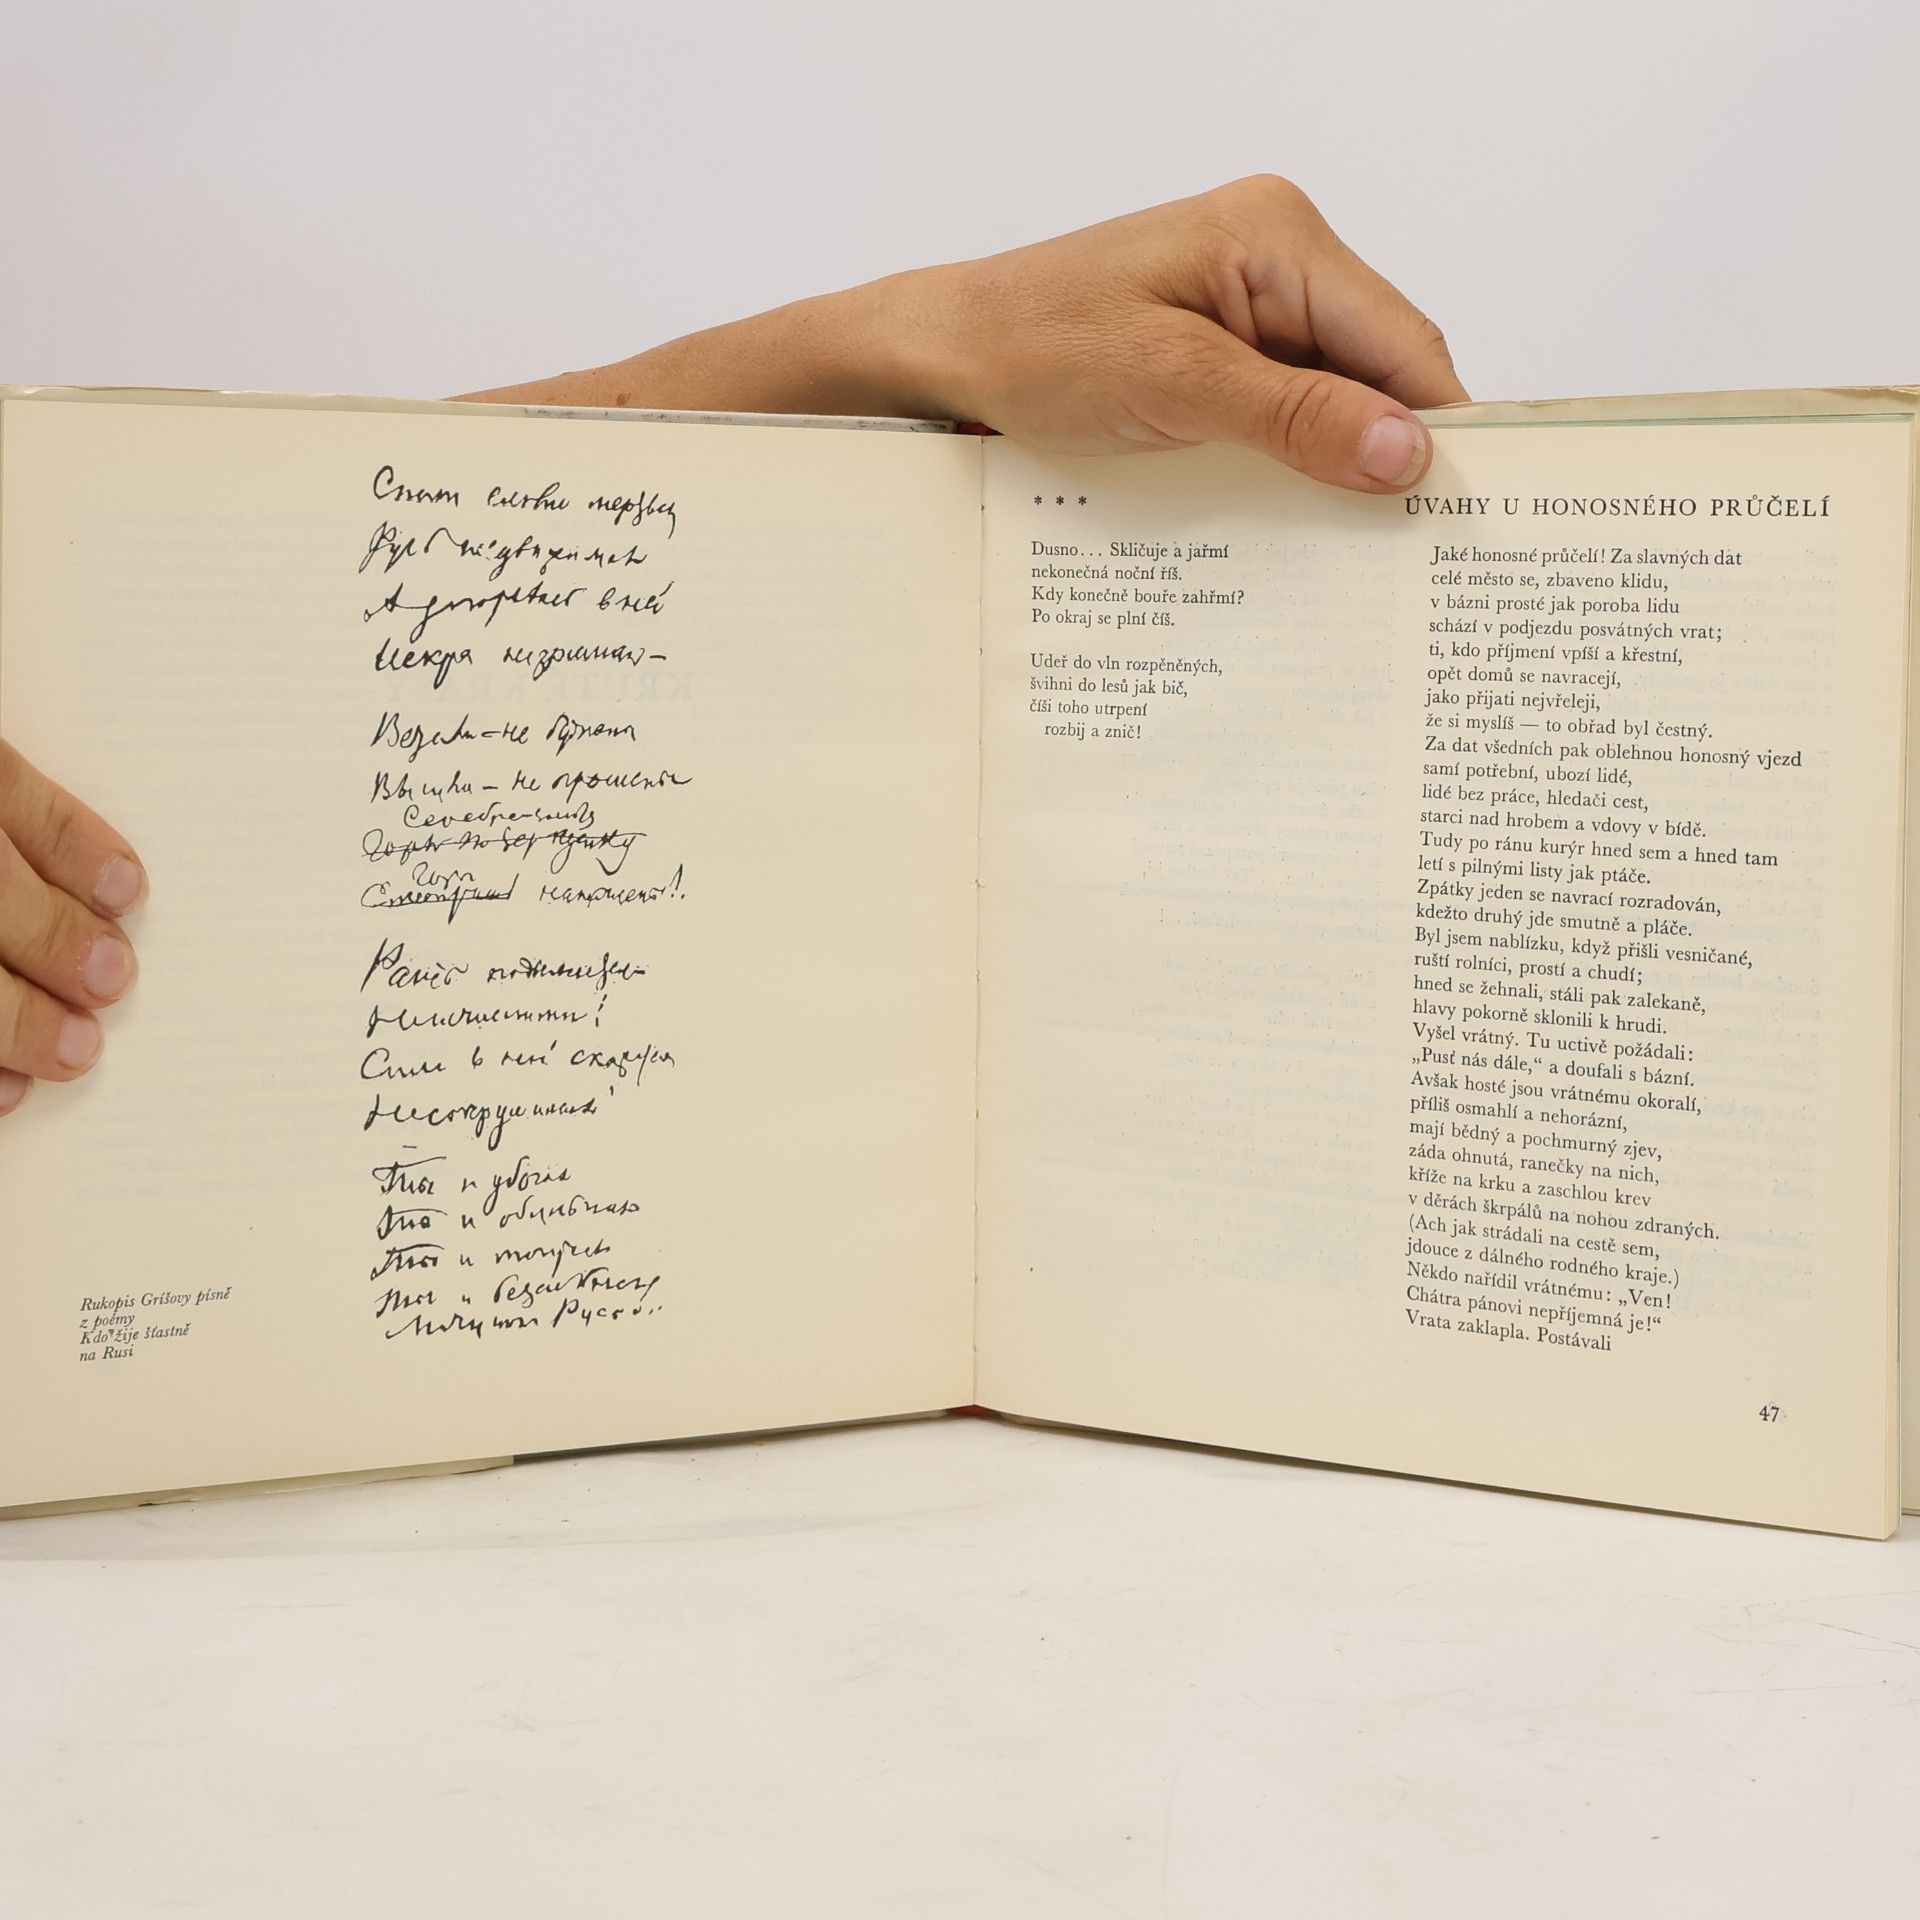 Русь недвижимая
в ней
Искра незримая —
Встали — не бужены
Вышли — не прошены
Горы наношены!
Рать подымается
Неисчислимая!
Сила в ней скажется
Несокрушимая!
Ты и убогая
Ты и обильная
Ты и могучая
Ты и бессильная
Матушка Русь!..
Rukopis Gríšovy písně
z poémy
Kdo žije šťastně
na Rusi
* * *
Dusno... Skličuje a jařmí
nekonečná noční říš.
Kdy konečně bouře zahřmí?
Po okraj se plní číš.
Udeř do vln rozpěněných,
švihni do lesů jak bič,
číši toho utrpení
rozbij a znič!
ÚVAHY U HONOSNÉHO PRŮČELÍ
Jaké honosné průčelí! Za slavných dat
celé město se, zbaveno klidu,
v bázni prosté jak poroba lidu
schází v podjezdu posvátných vrat;
ti, kdo příjmení vpíší a křestní,
opět domů se navracejí,
jako přijati nejvřeleji,
že si myslíš — to obřad byl čestný.
Za dat všedních pak oblehnou honosný vjezd
samí potřební, ubozí lidé,
lidé bez práce, hledači cest,
starci nad hrobem a vdovy v bídě.
Tudy po ránu kurýr hned sem a hned tam
letí s pilnými listy jak ptáče.
Zpátky jeden se navrací rozradován,
kdežto druhý jde smutně a pláče.
Byl jsem nablízku, když přišli vesničané,
ruští rolníci, prostí a chudí;
hned se žehnali, stáli pak zalekaně,
hlavy pokorně sklonili k hrudi.
Vyšel vrátný. Tu uctivě požádali:
„Pusť nás dále,“ a doufali s bázní.
Avšak hosté jsou vrátnému okoralí,
příliš osmahlí a nehorázní,
mají bědný a pochmurný zjev,
záda ohnutá, ranečky na nich,
kříže na krku a zaschlou krev
v děrách škrpálů na nohou zdraných.
(Ach jak strádali na cestě sem,
jdouce z dálného rodného kraje.)
Někdo nařídil vrátnému: „Ven!
Chátra pánovi nepříjemná je!“
Vrata zaklapla. Postávali
47